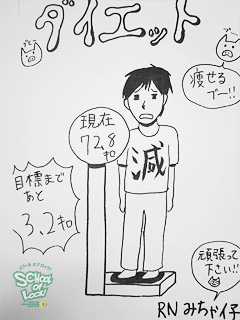 ダイエット
ブー
ブー
痩せる
ブー!!
現在
72.8
キロ
減
目標まで
あと
3.2キロ
SCHOOL
OF
LOCK!
頑張って
下さい!!
RN みちゃイ子